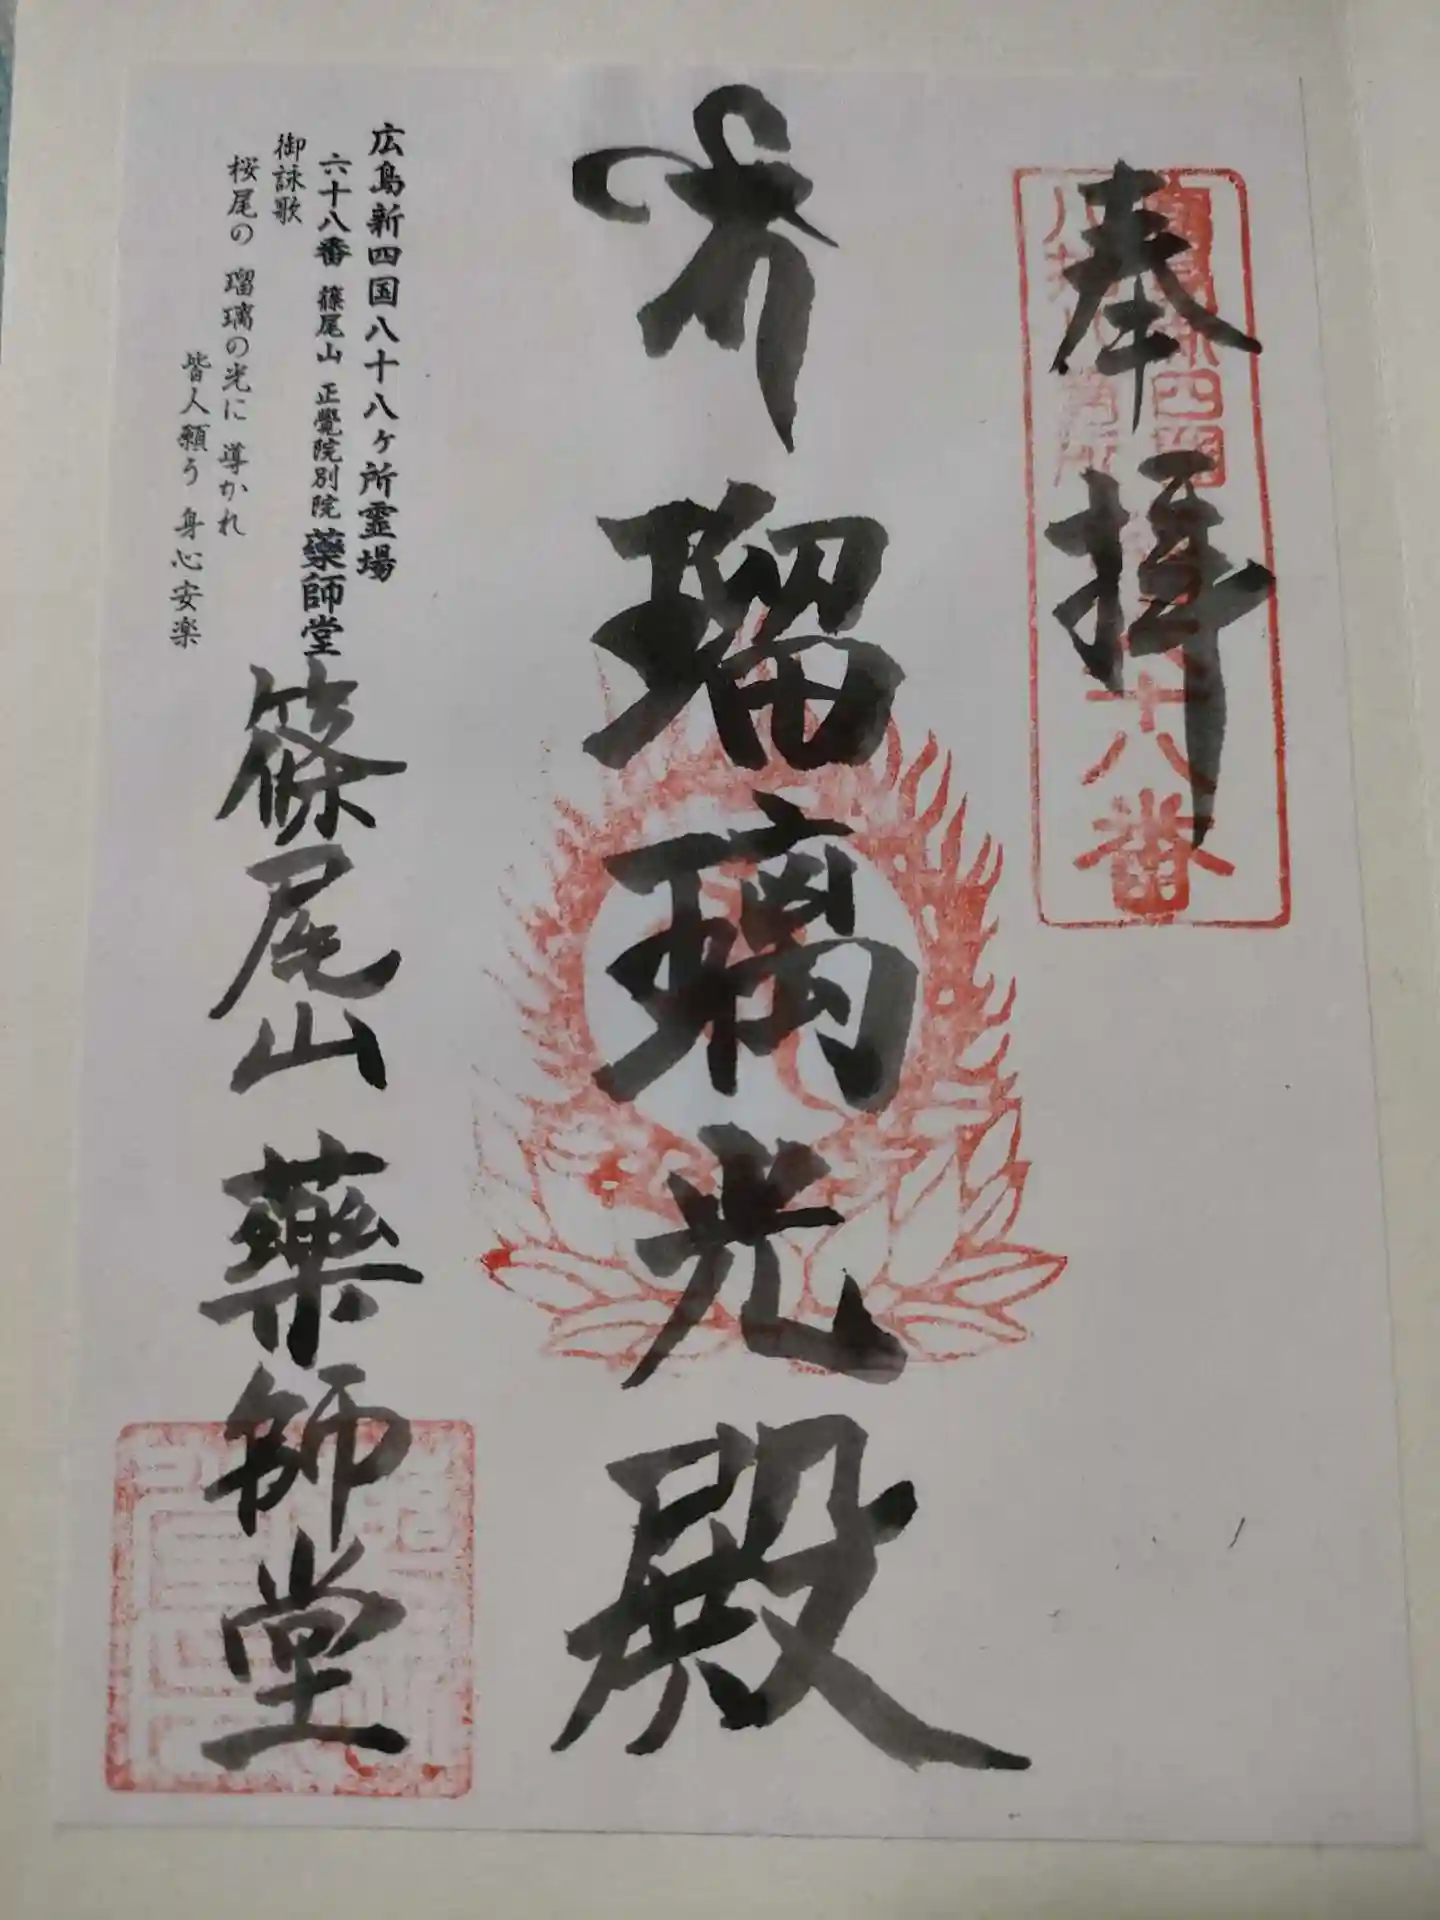 奉拝
六十八番
瑠璃光殿
広島新四国八十八ヶ所霊場
六十八番 篠尾山 正覺院別院 藥師堂
御詠歌
桜尾の 瑠璃の光に 導かれ
皆人願う 身心安楽
篠尾山 藥師堂